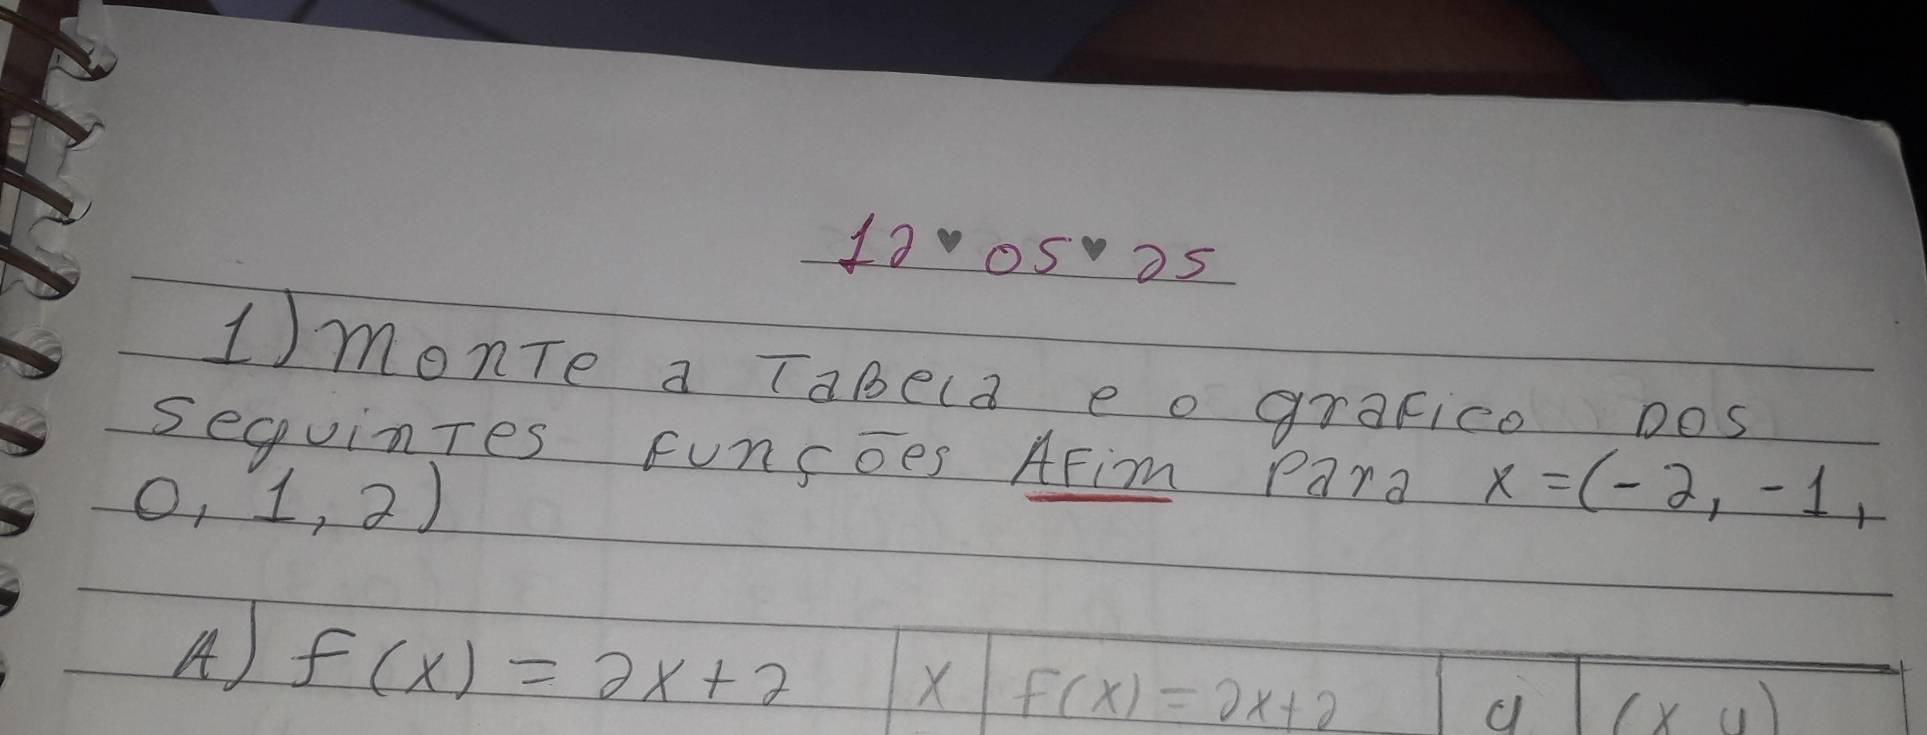 12♥05♥25
1) Monte a Tabela e o grafico DOS
seguintes Funções AFim Para x=(-2, -1,
0, 1, 2)
A) f(x) = 2x+2 | x | f(x) = 2x+2 | y | (x y)